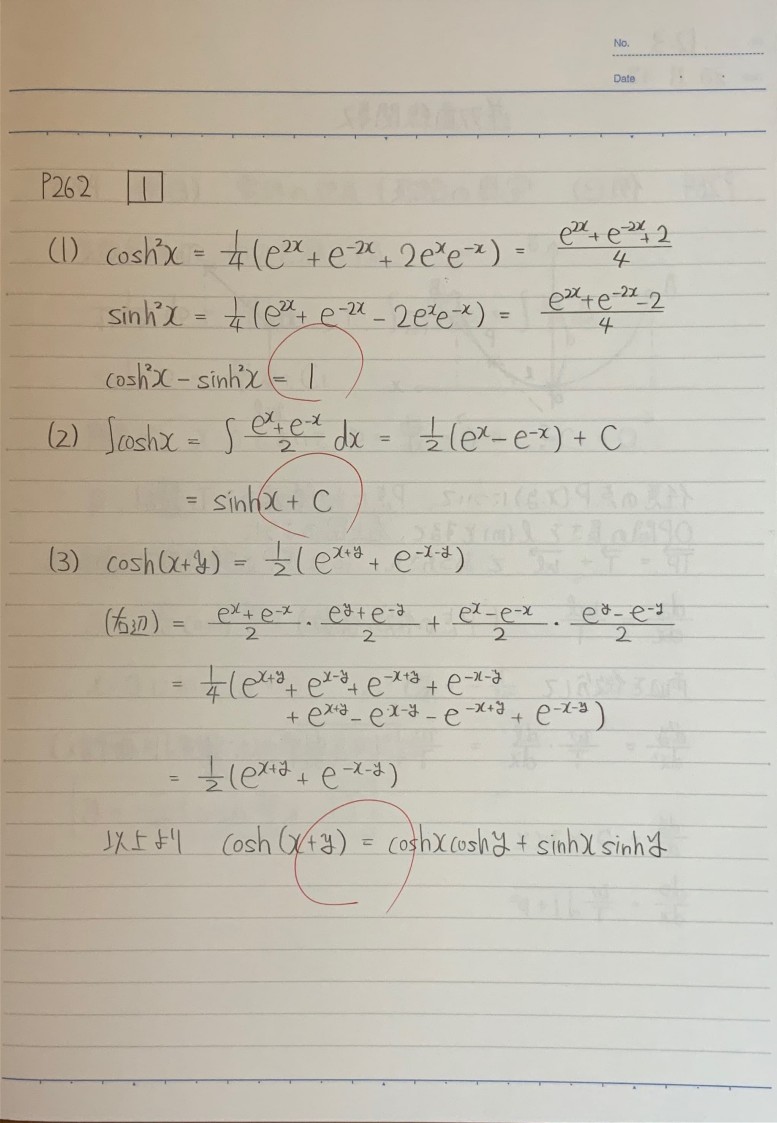 No.
Date
P262 1
(1) cosh²x = 1/4(e^{2x} + e^{-2x} + 2e^xe^{-x}) = (e^{2x} + e^{-2x} + 2)/4
sinh²x = 1/4(e^{2x} + e^{-2x} - 2e^xe^{-x}) = (e^{2x} + e^{-2x} - 2)/4
cosh²x - sinh²x = 1
(2) ∫coshx = ∫ (e^x + e^{-x})/2 dx = 1/2(e^x - e^{-x}) + C
= sinhx + C
(3) cosh(x+y) = 1/2(e^{x+y} + e^{-x-y})
(右辺) = (e^x + e^{-x})/2 · (e^y + e^{-y})/2 + (e^x - e^{-x})/2 · (e^y - e^{-y})/2
= 1/4(e^{x+y} + e^{x-y} + e^{-x+y} + e^{-x-y}
+ e^{x+y} - e^{x-y} - e^{-x+y} + e^{-x-y})
= 1/2(e^{x+y} + e^{-x-y})
以上より cosh(x+y) = coshxcoshy + sinhxsinhy